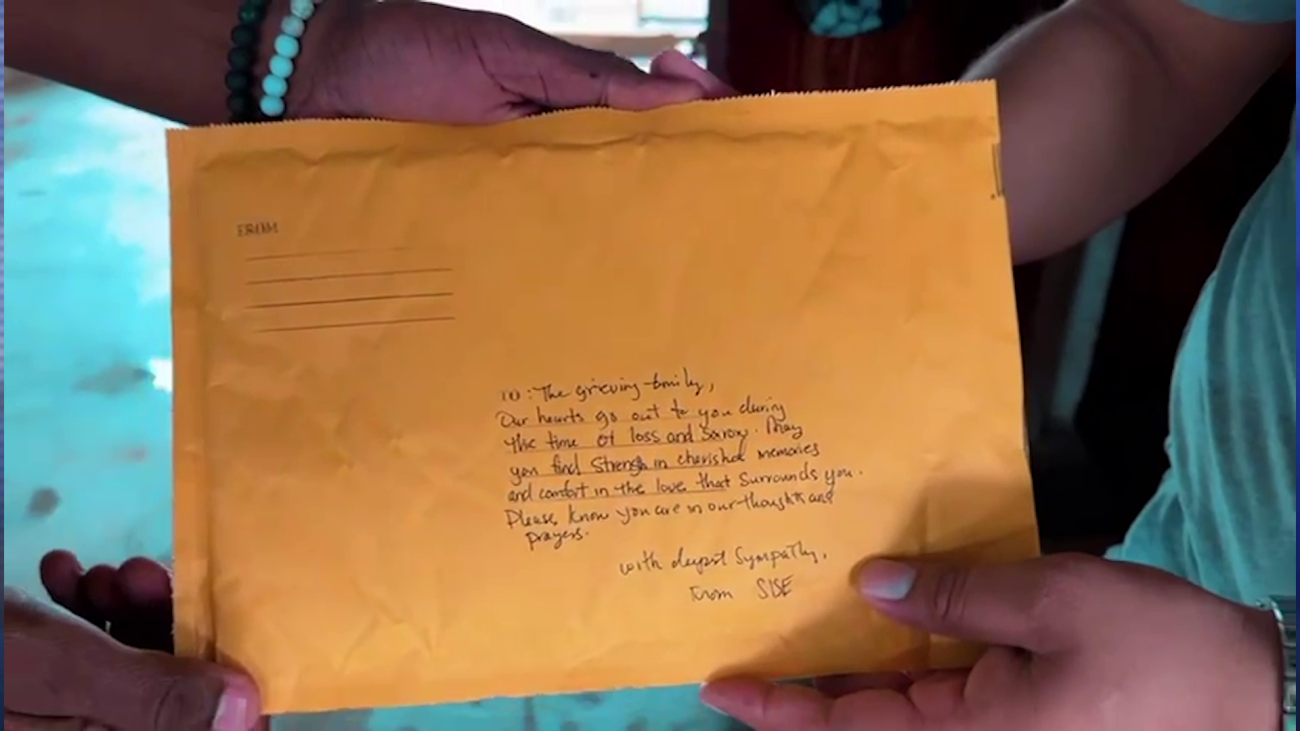 FROM
TO : The grieving family,
Our hearts go out to you during
the time of loss and Sorow. May
you find Strengh in cherished memories
and comfort in the love that Surrounds you.
Please, know you are in our thoughts and
prayers.
with deepest Sympathy,
From SISE